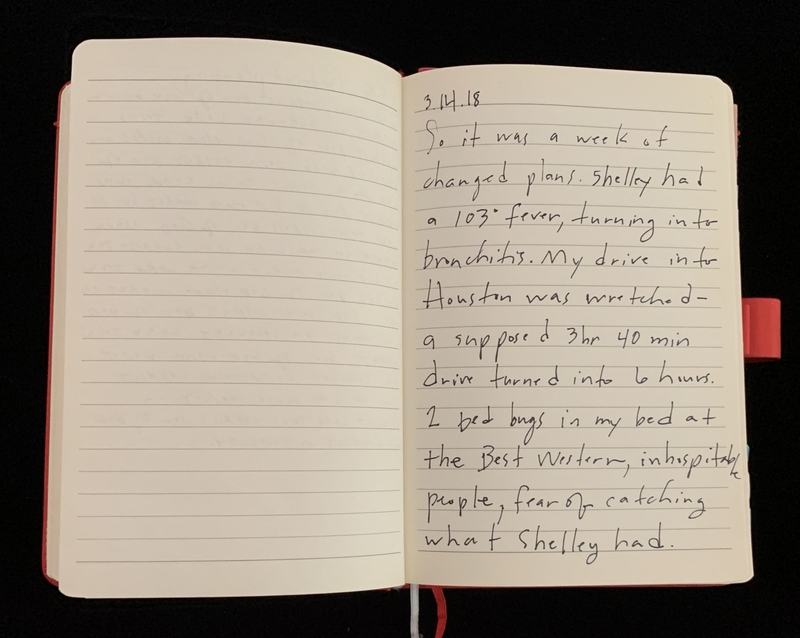 3.14.18
So it was a week of
changed plans. Shelley had
a 103° fever, turning into
bronchitis. My drive into
Houston was wretched-
a supposed 3hr 40 min
drive turned into 6 hours.
2 bed bugs in my bed at
the Best Western, inhospitable
people, fear of catching
what Shelley had.